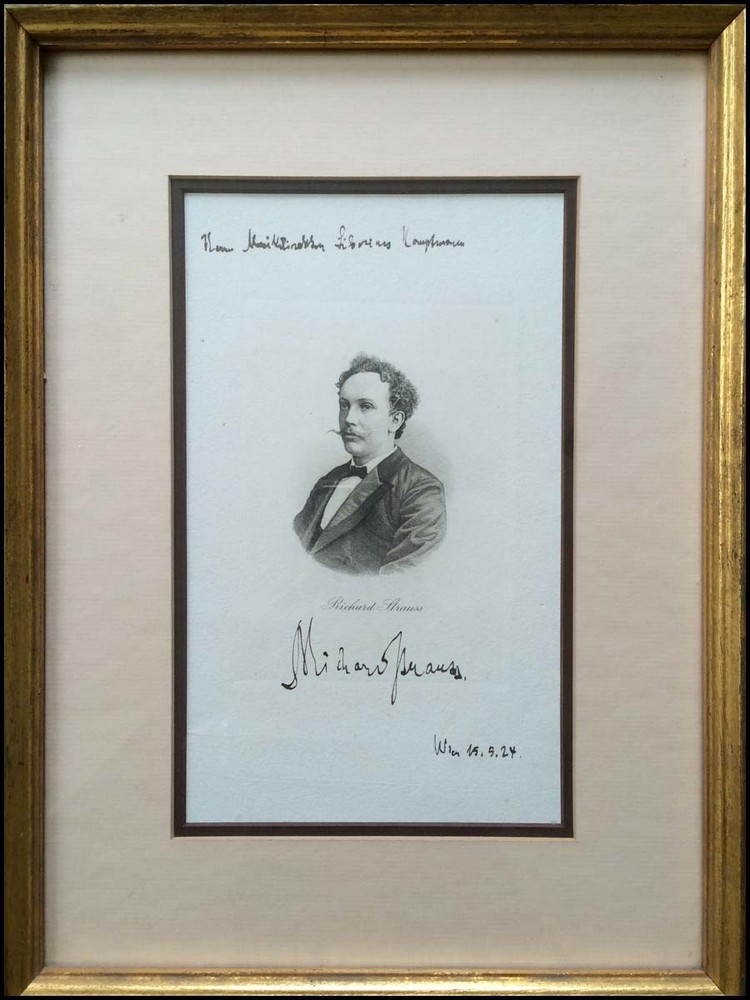 Herrn Musikdirektor Liborius Hauptmann
Richard Strauss
Richard Strauss.
Wien 15. 9. 24.